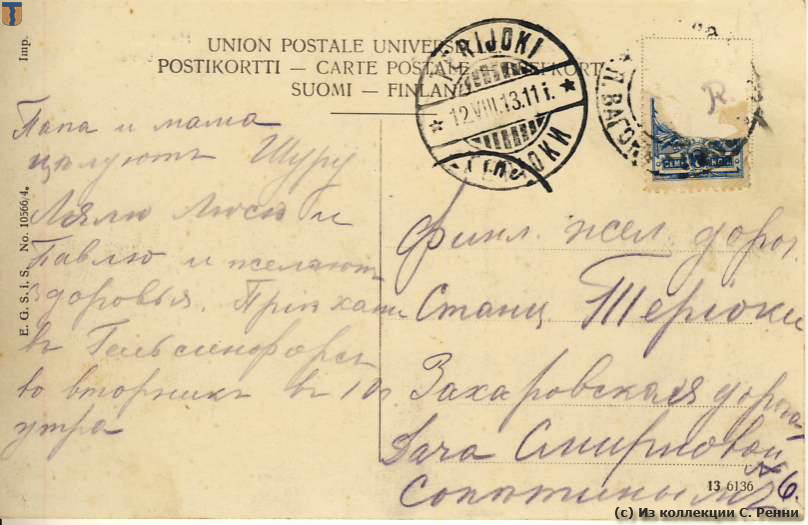 Imp.
UNION POSTALE UNIVERSELLE
POSTIKORTTI — CARTE POSTALE — POSTKORT
SUOMI — FINLAND
RIJOKI
12.VIII.13.11 i.
П. ВАГОН
R.
СЕМЬ КОП.
E. G. S. i. S. No. 10566/4.
Папа и мама
цѣлуютъ Шуру
Лялю Люсю и
Павлю и желаютъ
здоровья. Пріѣхали
въ Гельсингфорсъ
во вторникъ въ 10 ч
утра
Финл. жел. дорог.
Станц Теріоки
Захаровская дорога
Дача Смирновой
№ 6.
13 6136
(c) Из коллекции С. Ренни